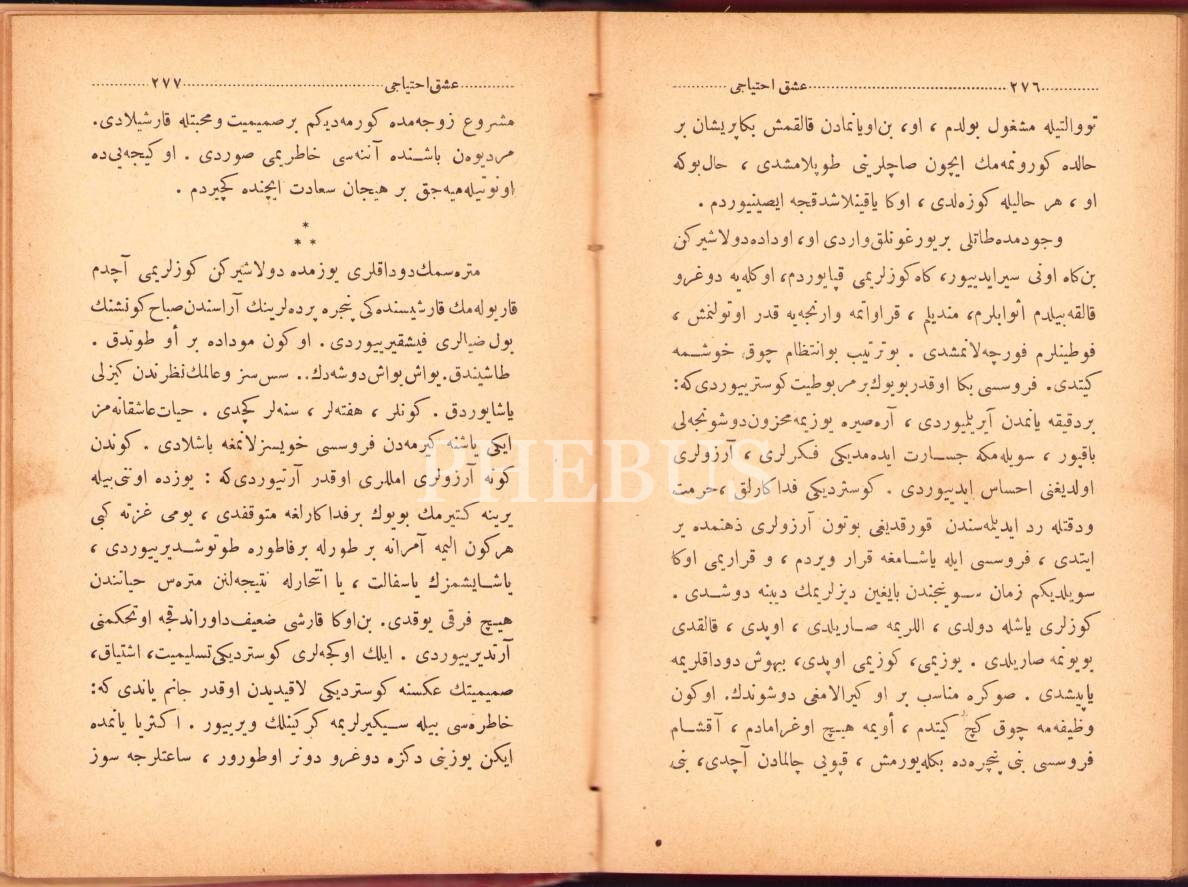 ٢٧٦ عشق احتیاجی
تووالتیله مشغول بولدم ، او، بن اویانمادن قالقمش بکا پریشان بر
حالده کورونمه‌مك ایچون صاچلرینی طوپلامشدی ، حال بوکه
او ، هر حالیله کوزه‌لدی ، اوکا یاقینلاشدقجه ایصینیوردم .
وجودمده طاتلی بر یورغونلق واردی او، اوداده دولاشیرکن
بن کاه اونی سیر ایدییور، کاه کوزلریمی قپایوردم، اوکله‌یه دوغرو
قالقه‌بیلدم أثوابلرم، مندیلم ، قراواتمه وارنجه‌یه قدر اوتولنمش ،
فوطینلرم فورچه‌لانمشدی . بو ترتیب بو انتظام چوق خوشمه
کیتدی. فروسسی بکا اوقدر بویوك بر مربوطیت کوسترییوردی که:
بر دقیقه یانمدن آیریلمیوردی ، آره‌صیره یوزیمه محزون دوشونجه‌لی
باقیور ، سویله‌مکه جسارت ایده‌مدیکی فکرلری ، آرزولری
اولدیغنی احساس ایدییوردی . کوستردیکی فداکارلق ، حرمت
ودقتله رد ایدیله‌سندن قورقدیغی بوتون آرزولری ذهنمده یر
ایتدی ، فروسسی ایله یاشامغه قرار ویردم ، و قراریمی اوکا
سویلدیکم زمان سوینجندن بایغین دیزلریمك دیبنه دوشدی .
کوزلری یاشله دولدی ، اللریمه صاریلدی ، اوپدی ، قالقدی
بویونمه صاریلدی . یوزیمی، کوزیمی اوپدی، بیهوش دوداقلریمه
یاپیشدی . صوکره مناسب بر او کیرالامغی دوشوندك. اوکون
وظیفه‌مه چوق کچ کیتدم ، أویمه هیچ اوغرامادم ، آقشام
فروسسی بنی پنچره‌ده بکله‌یورمش ، قپویی چالمادن آچدی، بنی
عشق احتیاجی ٢٧٧
مشروع زوجه‌مده کورمه‌دیکم بر صمیمیت ومحبتله قارشیلادی.
مردیوه‌ن باشنده آننه‌سی خاطریمی صوردی . او کیجه‌یی ده
اونوتیله‌میه‌جق بر هیجان سعادت ایچنده کچیردم .
*
* *
متره‌سمك دوداقلری یوزمده دولاشیرکن کوزلریمی آچدم
قاریوله‌مك قارشیسنده‌کی پنجره پرده‌لرینك آراسندن صباح کونشنك
بول ضیالری فیشقیرییوردی . او کون موداده بر أو طوتدق .
طاشیندق. یواش یواش دوشه‌دك.. سس‌سز وعالمك نظرندن کیزلی
یاشایوردق . کونلر ، هفته‌لر ، سنه‌لر کچدی . حیات عاشقانه‌مز
ایکی یاشنه کیرمه‌دن فروسسی خویسزلانمغه باشلادی . کوندن
کونه آرزولری امللری اوقدر آرتیوردی که : یوزده اونی بیله
یرینه کتیرمك بویوك بر فداکارلغه متوقفدی ، یومی غزته کبی
هرکون الیمه آمرانه بر طورله بر فاطوره طوتوشدیرییوردی ،
یاشایشمزك یا سفالت ، یا انتحارله نتیجه‌لنن متره‌س حیاتندن
هیچ فرقی یوقدی. بن اوکا قارشی ضعیف داوراندقجه او تحکمنی
آرتدیرییوردی . ایلك اوکجه‌لری کوستردیکی تسلیمیت، اشتیاق،
صمیمیتك عکسنه کوستردیکی لاقیدیدن اوقدر جانم یاندی که:
خاطره‌سی بیله سیکیرلریمه کرکینلك ویرییور . اکثریا یانمده
ایکن یوزینی دکزه دوغرو دونر اوطورور ، ساعتلرجه سوز